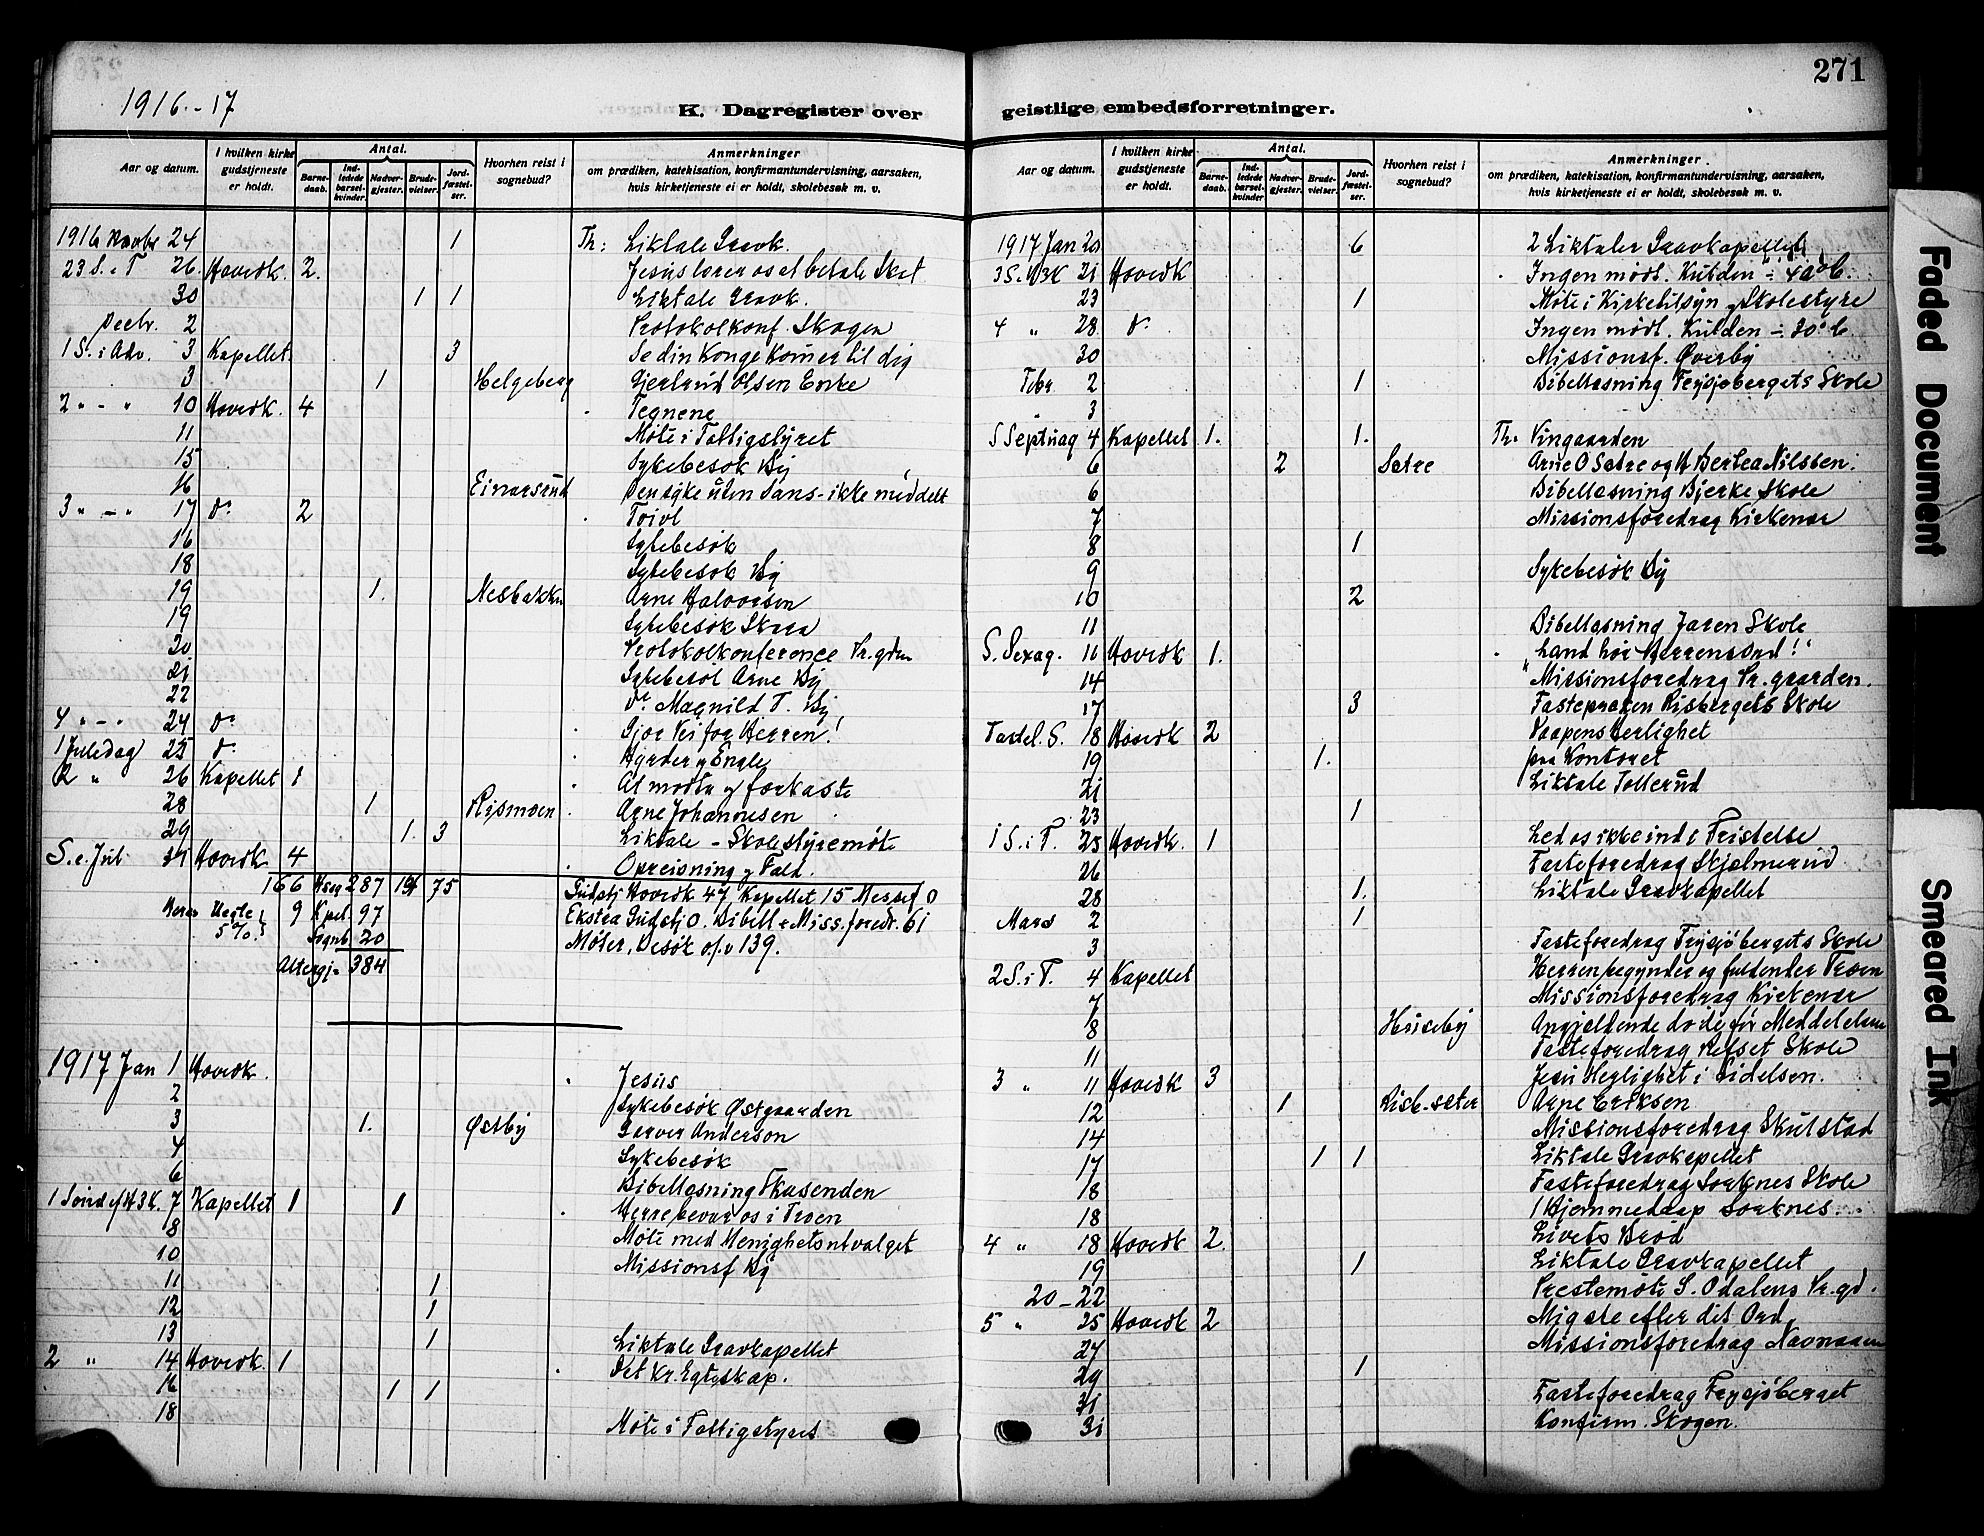 271
1916.-17
K. Dagregister over geistlige embedsforretninger.
Aar og datum. I hvilken kirke gudstjeneste er holdt. Antal. Barnedaab. Indledede barselkvinder. Nadvergjester. Brudevielser. Jordfæstelser. Hvorhen reist i sognebud? Anmerkninger om prædiken, katekisation, konfirmantundervisning, aarsaken, hvis kirketjeneste ei er holdt, skolebesøk m. v.
1916 Novbr 24 1 Th: Liktale Gravk.
23 S. e T 26 Hovedk 2. Jesus lærer os at betale Skat
30 1 1 Liktale Gravk.
Decbr. 2 Protokolkonf. Skogen
1 S. i Adv. 3 Kapellet 3 Se din Konge kommer til dig
3 1 Helgeberg Gjertrud Olsen Enke
2 " - " 10 Hovedk. 4 Tegnene
11 Møte i Fattigstyret
15 Sykebesøk By
16 Einarsrud Den syke uten Sans - ikke meddelt
3 " - " 17 do 2 Tvivl
16 Sykebesøk
18 Sykebesøk By
19 1. Nesbakken Arne Halvorsen
19 Sykebesøk Skara
20 Protokolkonference Pr.gdn
21 Sykebesøk Arne By
22 do Magnild T. By
4 " - " 24 do Gjør Vei for Herren!
1 Juledag 25 do Hyrder og Engle
2 " 26 Kapellet 1 At motta og forkaste
28 1 Rismoen Arne Johannesen
29 1. 3 Liktale - Skolestyremøte
S. e. Jul 31 Hovedk 4 Opreisning og Fald.
166 287 19 75 Gudstj Hovedk 47 Kapellet 15 Messef 0
9 Kpel 97 Ekstra Gudstj 0. Bibell & Miss. foredr. 61
5% Sognb 20 Møter, Besøk o.f.v 139.
Altergj. 384
1917 Jan 1 Hovedk. Jesus
2 Sykebesøk Østgaarden
3 1. Østby Garver Anderson
4 Sykebesøk
6 Bibellæsning Flusenden
1 Sønd e/H3K. 7 Kapellet 1 1 Herre bevar os i Troen
8 Møte med Menighetsutvalget
10 Missionsf By
11 1
12 1
13 1 Liktale Gravkapellet
2 " 14 Hovedk. 1 Det Kr. Egteskap.
16 1 1
18 Møte i Fattigstyret
1917 Jan 20 6 2 Liktaler Gravkapellet
3 S. e/H3K 21 Hovedk Ingen mødt. Kulden ÷ 40° C.
23 1 Møte i Kirketilsyn og Skolestyre
4 " 28 do Ingen mødt. Kulden ÷ 30° C
30 Missionsf. Øverby
Febr 2 1 Bibellæsning Frysjøbergets Skole
" 3
S Septuag 4 Kapellet 1. 1. Th: Vingaarden
6 2 Sætre Arne O Sætre og H Berthea Nilssen.
6 Bibellæsning Bjerke Skole
7 Missionsforedrag Kirkenær
8 1
9 Sykebesøk By
10 2
11 Bibellæsning Jaren Skole
S. Sexag. 11 Hovedk 1. Land hør Herrens ord!"
14 Missionsforedrag Pr.gaarden.
17 3 Fastepræken Risbergets Skole
Fastel. S. 18 Hovedk 2 Vaapens Herlighet
19 1. paa Kontoret
21 Liktale Tollerud
23 1
1 S. i F. 25 Hovedk. 1 Led os ikke ind i Fristelse
26 Fasteforedrag Skjelmerud
28 1. Liktale Gravkapellet
Mars 2 1
3 Fasteforedrag Frysjøbergets Skole
2 S. i F. 4 Kapellet Herren begynder og fuldender Troen
7 Missionsforedrag Kirkenær
8 Huseby Angjeldende døde før Meddelelsen
11 Fasteforedrag Refset Skole
3 " 11 Hovedk 3 Jesu Herlighet i Lidelsen.
12 1 Risb.-sæter Arne Eriksen
14 Missionsforedrag Skulstad
17 1 1 Liktale Gravkapellet
18 Fasteforedrag Sorknes Skole
18 1 Hjemmedaap Sorknes.
4 " 18 Hovedk 2. Livets Brød
19 1 Liktale Gravkapellet
20 - 22 Prestemøte S. Odalens Pr.gd.
5 " 25 Hovedk 2 Mig ske efter dit Ord
27 Missionsforedrag Navnaaen
29 1
31 Fasteforedrag Frysjøberget
31 Konfirm. Skogen.
Faded Document
Smeared Ink